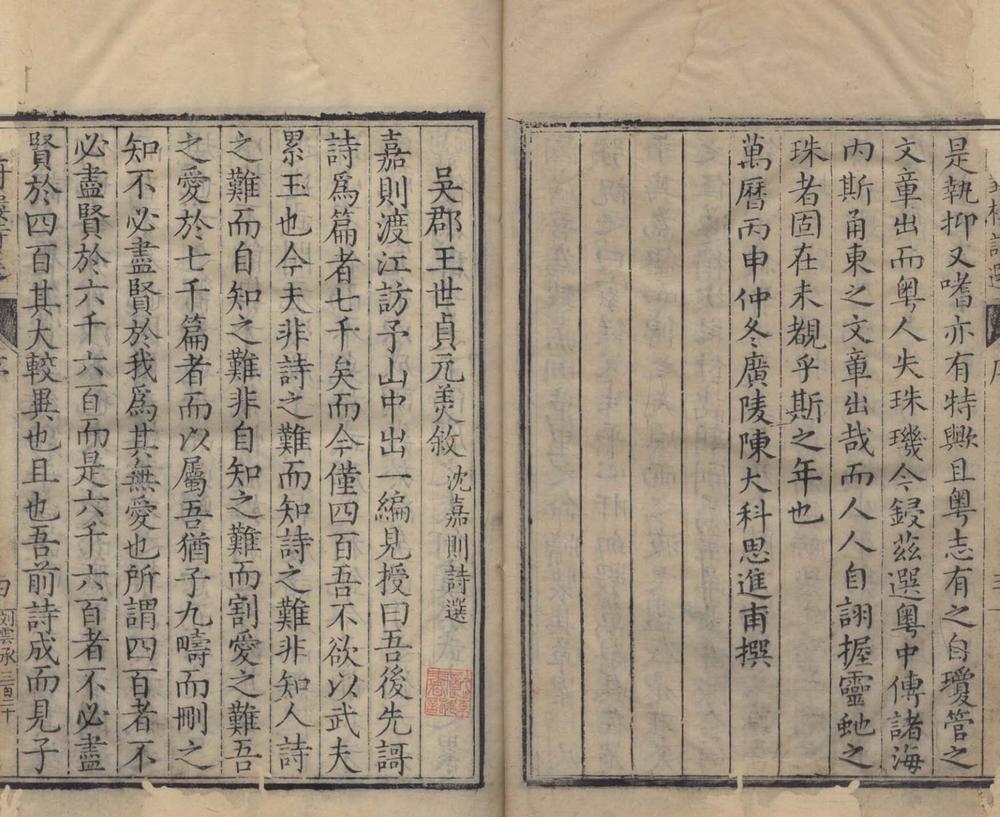 是執抑又嗜亦有特歟且粤志有之自瓊管之
文章出而粤人失珠璣今鋟茲選粤中傳諸海
内斯甬東之文章出哉而人人自詡握靈虵之
珠者固在未覩乎斯之年也
萬曆丙申仲冬廣陵陳大科思進甫撰
吳郡王世貞元美敘 沈嘉則詩選
嘉則渡江訪予山中出一編見授曰吾後先謌
詩爲篇者七千矣而今僅四百吾不欲以武夫
累玉也今夫非詩之難而知詩之難非知人詩
之難而自知之難非自知之難而割愛之難吾
之愛於七千篇者而以屬吾猶子九疇而刪之
知不必盡賢於我爲其無愛也所謂四百者不
必盡賢於六千六百而是六千六百者不必盡
賢於四百其大較異也且也吾前詩成而見子
四 刘雲承 三百二十